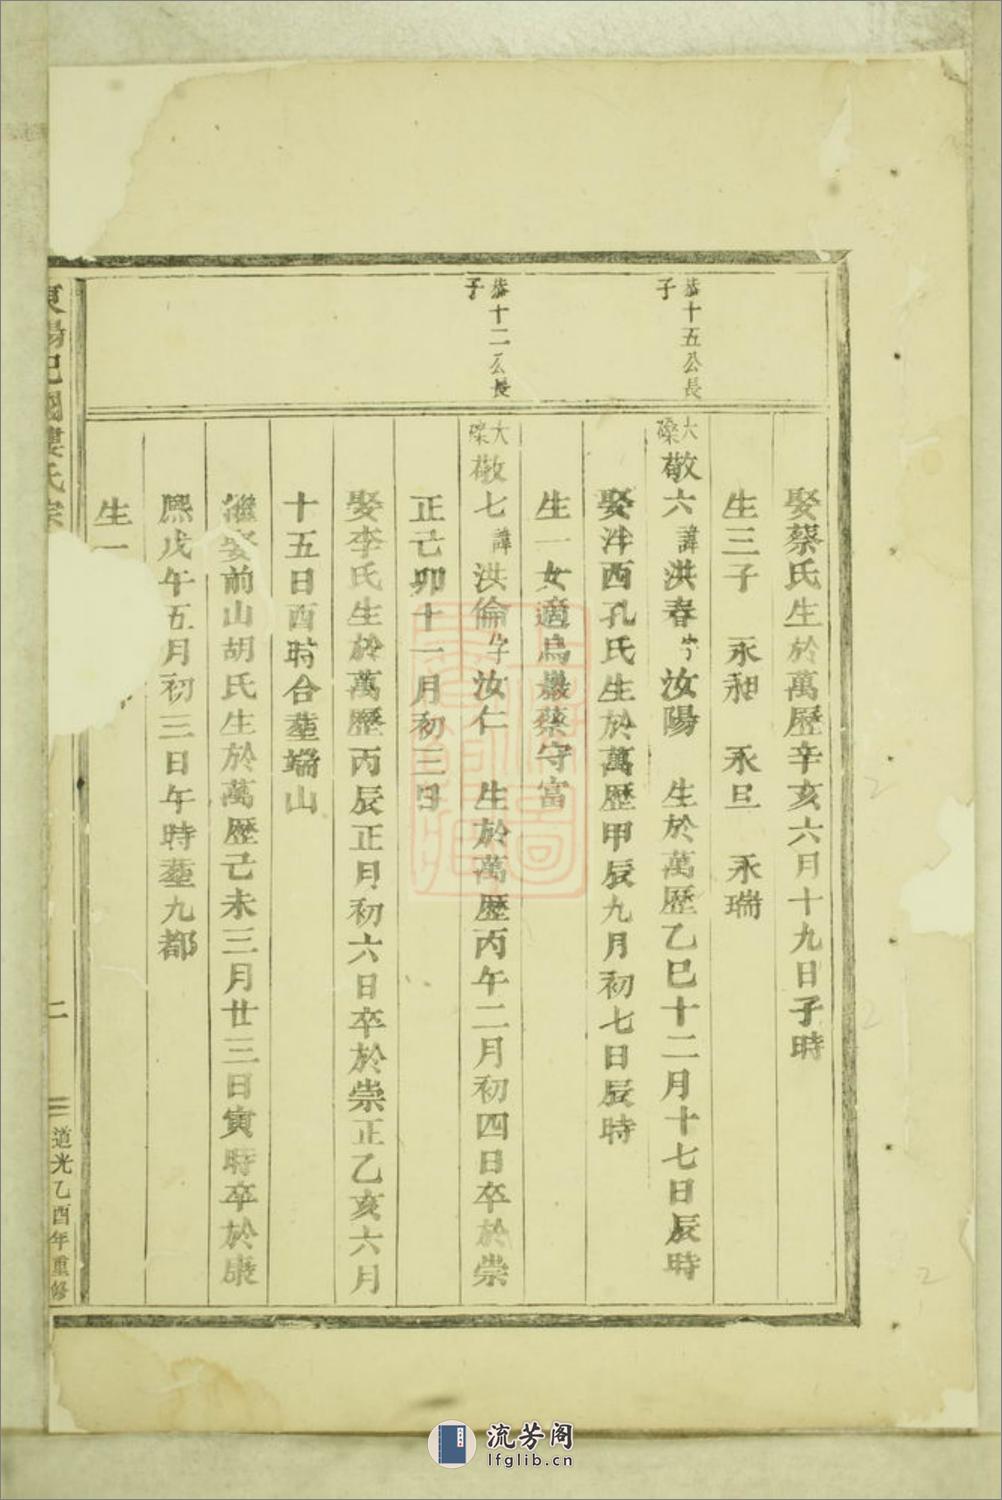 恭十五公長
子
恭十二公長
子
娶蔡氏生於萬歷辛亥六月十九日子時
生三子 永昶 永旦 永瑞
大磉敬六諱洪春字汝陽 生於萬歷乙巳十二月十七日辰時
娶泮西孔氏生於萬歷甲辰九月初七日辰時
生一女適烏巖蔡守富
大磉敬七諱洪倫字汝仁 生於萬歷丙午二月初四日卒於崇
正己卯十一月初三日
娶李氏生於萬歷丙辰正月初六日卒於崇正乙亥六月
十五日酉時合塟端山
繼娶前山胡氏生於萬歷己未三月廿三日寅時卒於康
熙戊午五月初三日午時塟九都
生一
東陽巳國婁氏宗
二
道光乙酉年重修
流芳阁
lfglib.cn